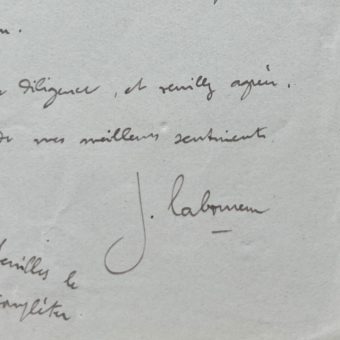 diligence, et veuillez agréer.
de mes meilleurs sentiments
J. Labonneau
veuillez le
compléter